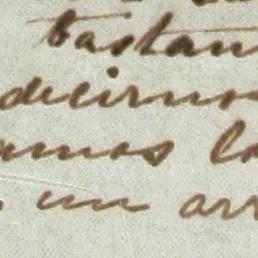 bastan
decirnos
amos la
un arr